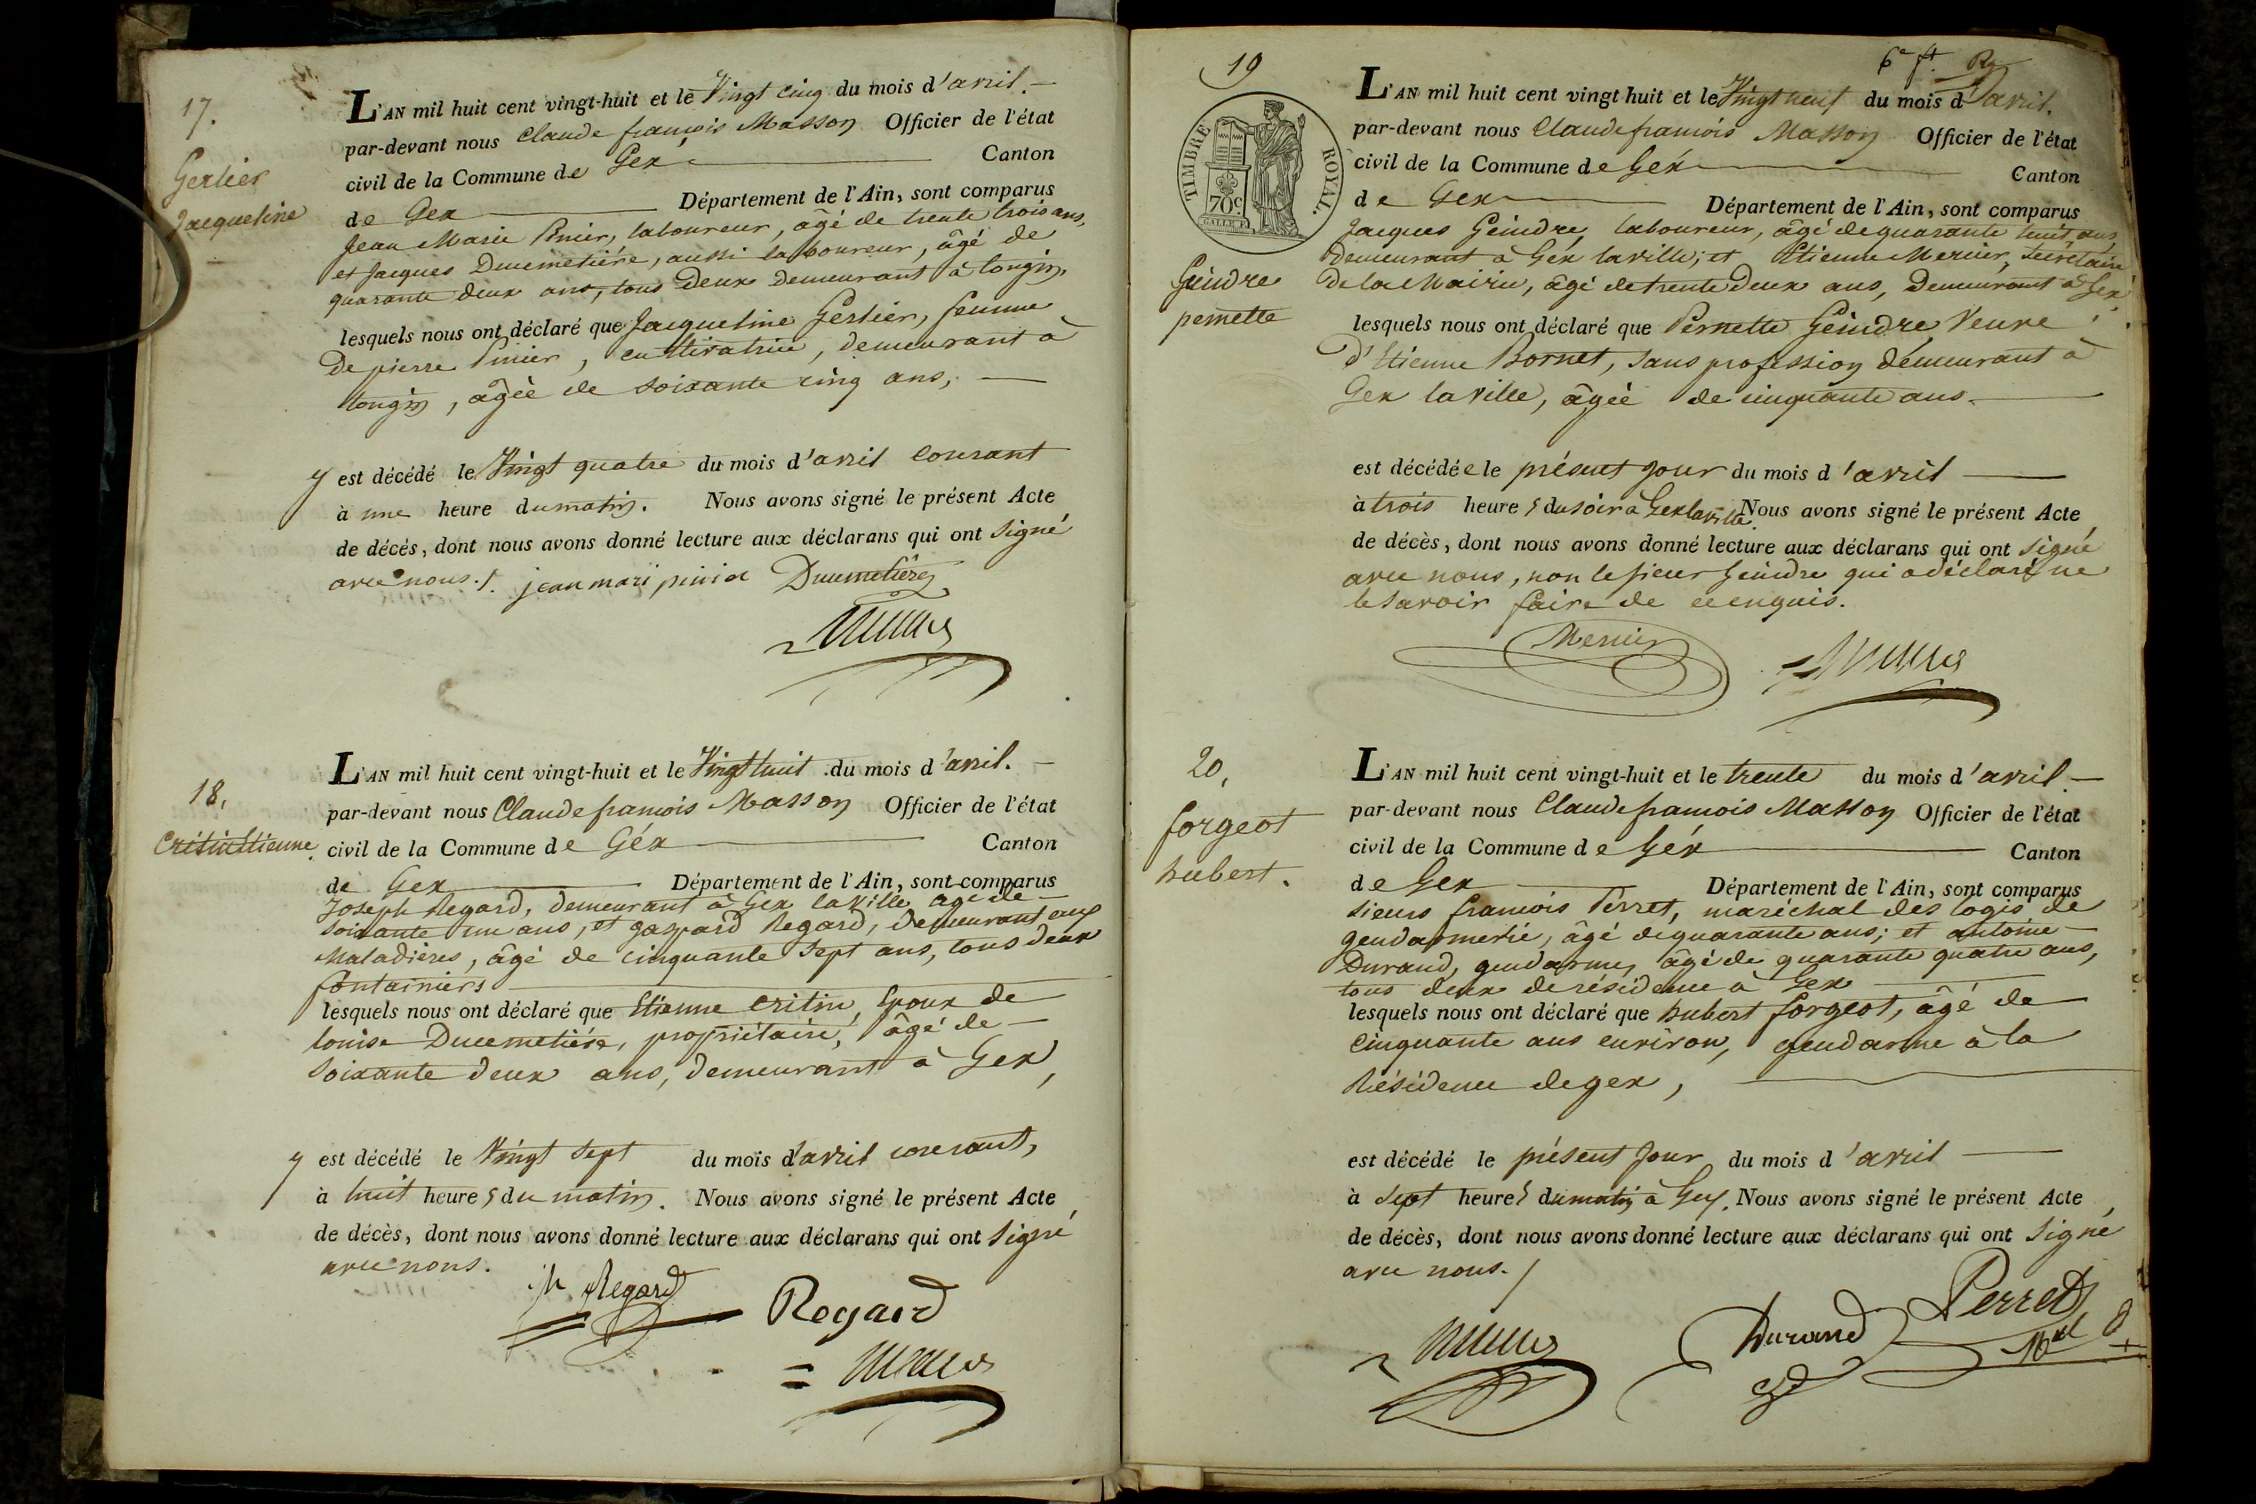 17.
Gerlier
Jacqueline
L'AN mil huit cent vingt-huit et le Vingt cinq du mois d'avril. —
par-devant nous Claude françois Masson Officier de l'état
civil de la Commune de Gex Canton
de Gex Département de l'Ain, sont comparus
Jean Marie Pinier, laboureur, âgé de trente trois ans,
et Jacques Ducimetière, aussi laboureur, âgé de
quarante deux ans, tous deux demeurant à tougin,
lesquels nous ont déclaré que Jacqueline Gerlier, femme
De pierre Pinier, cultivatrice, demeurant à
tougin, âgée de soixante cinq ans, —
y est décédé le Vingt quatre du mois d'avril courant
à une heure du matin. Nous avons signé le présent Acte
de décès, dont nous avons donné lecture aux déclarans qui ont signé
avec nous./. jean mari pinier Ducimetière
18.
Critin Etienne.
L'AN mil huit cent vingt-huit et le Vingt huit du mois d'avril. —
par-devant nous Claude françois Masson Officier de l'état
civil de la Commune de Géx Canton
de Gex Département de l'Ain, sont comparus
Joseph Regard, demeurant à Gex la Ville âgé de
soixante un ans, et gaspard Regard, demeurant aux
Maladières, âgé de cinquante sept ans, tous deux
fontainiers
lesquels nous ont déclaré que Etienne Critin, Epoux de
louise Ducimetière, propriétaire, âgé de —
soixante deux ans, demeurant à Gex,
y est décédé le Vingt sept du mois d'avril courant,
à huit heures du matin. Nous avons signé le présent Acte
de décès, dont nous avons donné lecture aux déclarans qui ont signé
avec nous.
Regard Regard
19
6e ft.
TIMBRE ROYAL.
70c
Geindre
pernette
L'AN mil huit cent vingt huit et le Vingt neuf du mois d'avril.
par-devant nous Claude françois Masson Officier de l'état
civil de la Commune de Géx Canton
de Gex Département de l'Ain, sont comparus
Jacques Geindre, laboureur, âgé de quarante huit ans,
demeurant à Géx la ville; et Etienne Mercier, Secrétaire
de la Mairie, âgé de trente deux ans, Demeurant à Gex
lesquels nous ont déclaré que Pernette Geindre, Veuve
d'Etienne Bornet, sans profession demeurant à
Gex la Ville, âgée de cinquante ans.
est décédée le présent jour du mois d'avril
à trois heures du soir à Gex la ville. Nous avons signé le présent Acte
de décès, dont nous avons donné lecture aux déclarans qui ont signé
avec nous, non le sieur Geindre qui a déclaré ne
le savoir faire de ce enquis.
Mercier
20.
forgeot
hubert.
L'AN mil huit cent vingt-huit et le trente du mois d'avril —
par-devant nous Claude françois Masson Officier de l'état
civil de la Commune de Géx Canton
de Gex Département de l'Ain, sont comparus
sieurs françois Perret, maréchal des logis de
gendarmerie, âgé de quarante ans; et antoine
Durand, gendarme, âgé de quarante quatre ans,
tous deux de résidence à Gex
lesquels nous ont déclaré que hubert forgeot, âgé de
cinquante ans environ, gendarme à la
Résidence de gex,
est décédé le présent jour du mois d'avril
à sept heures du matin à Gex. Nous avons signé le présent Acte
de décès, dont nous avons donné lecture aux déclarans qui ont signé
avec nous./
Durand Perret